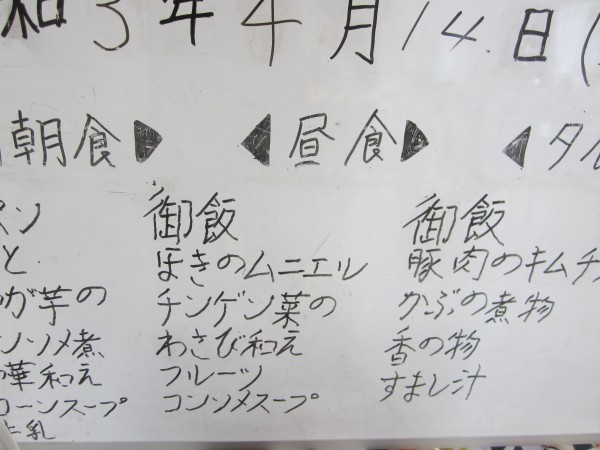 和3年4月14.日(
朝食▶ ◀昼食▶ ◀夕食
パン
と
が芋の
ンソメ煮
華和え
コーンスープ
牛乳
御飯
ほきのムニエル
チンゲン菜の
わさび和え
フルーツ
コンソメスープ
御飯
豚肉のキムチ
かぶの煮物
香の物
すまし汁